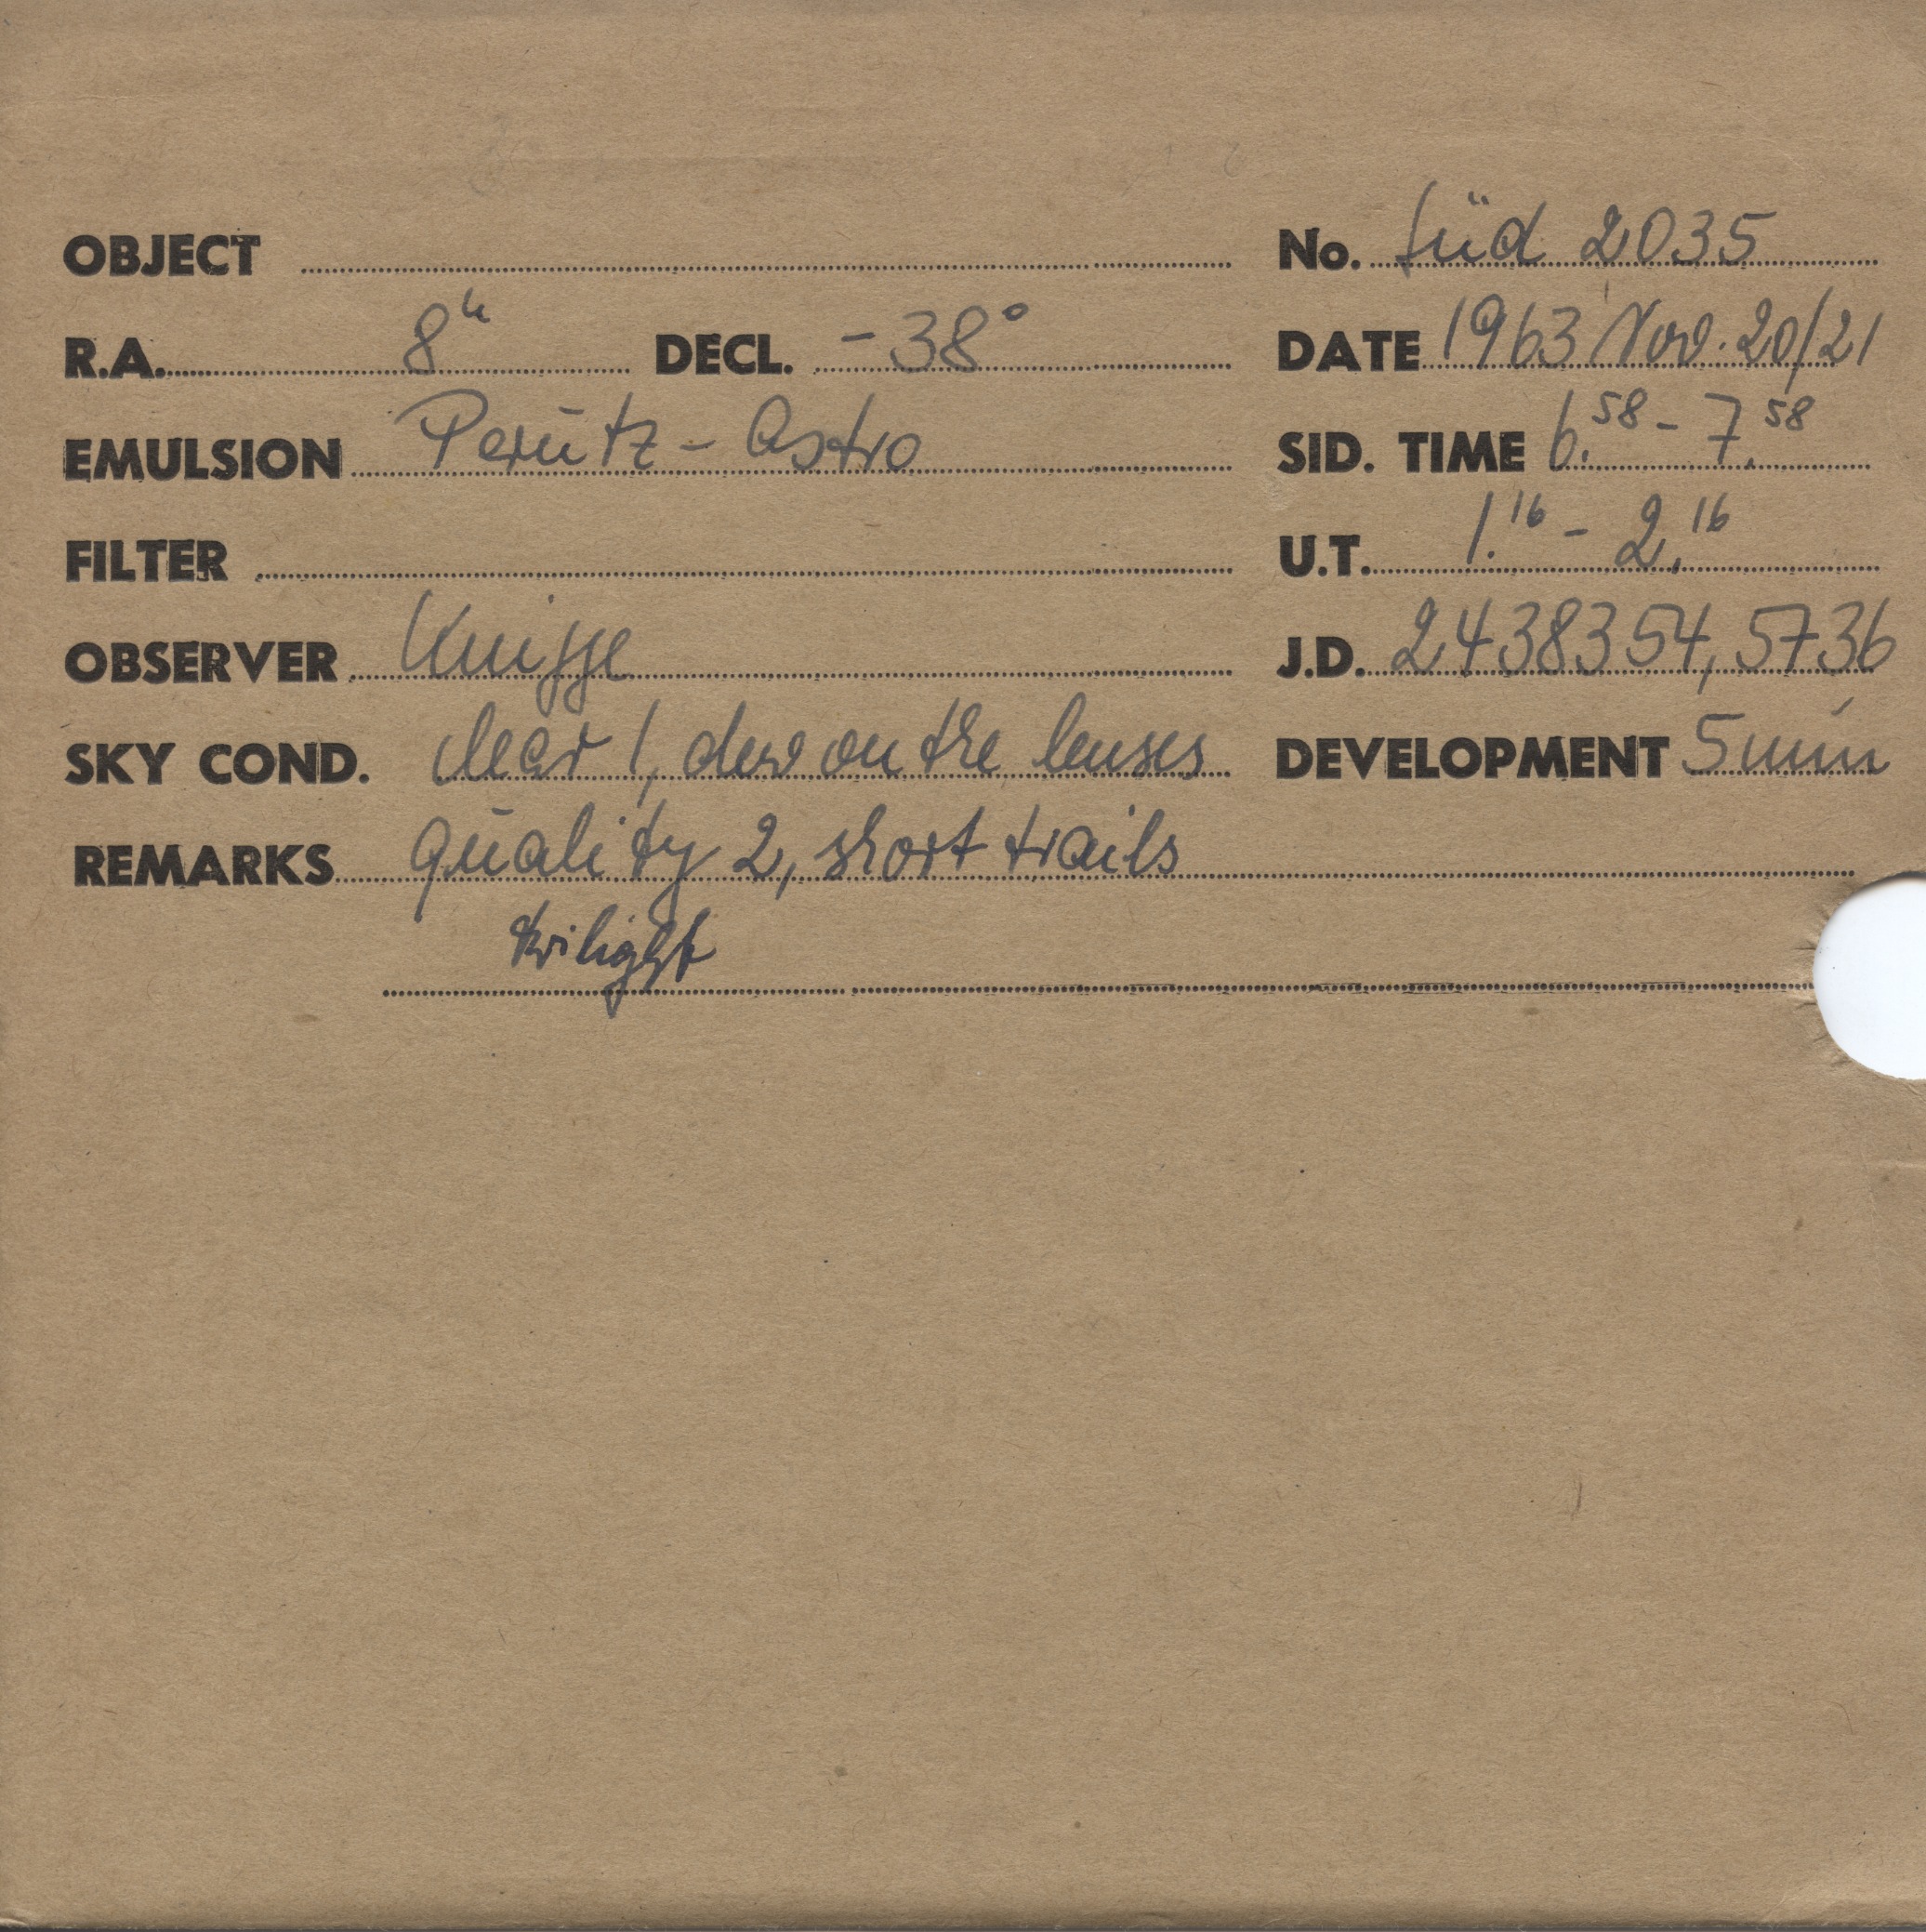 OBJECT No. Süd 2035
R.A. 8h DECL. -38° DATE 1963 Nov. 20/21
EMULSION Perutz - Astro SID. TIME 6.58 - 7.58
FILTER U.T. 1.16 - 2.16
OBSERVER Knigge J.D. 2438354,5736
SKY COND. clear 1, dew on the lenses DEVELOPMENT 5 min
REMARKS quality 2, short trails
twilight